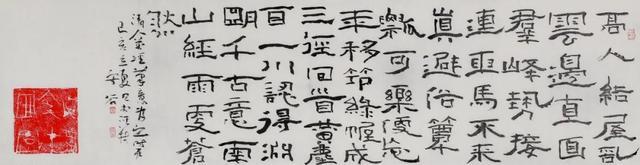 高人結屋亂
雲邊直面
羣峰勢接
連車馬不來
真避俗簞
瓢可樂便忘
年移筇綠幄成
三徑回首黃塵
自一川認得淵
明千古意南
山經雨更蒼
然